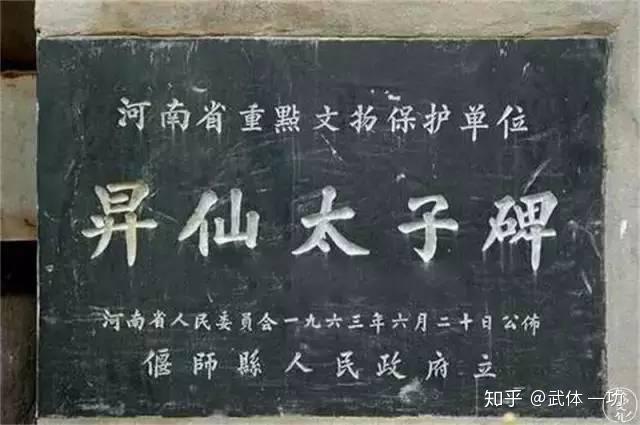 河南省重點文物保护单位
昇仙太子碑
河南省人民委員会一九六三年六月二十日公佈
偃師縣人民政府立
知乎 @武体一功